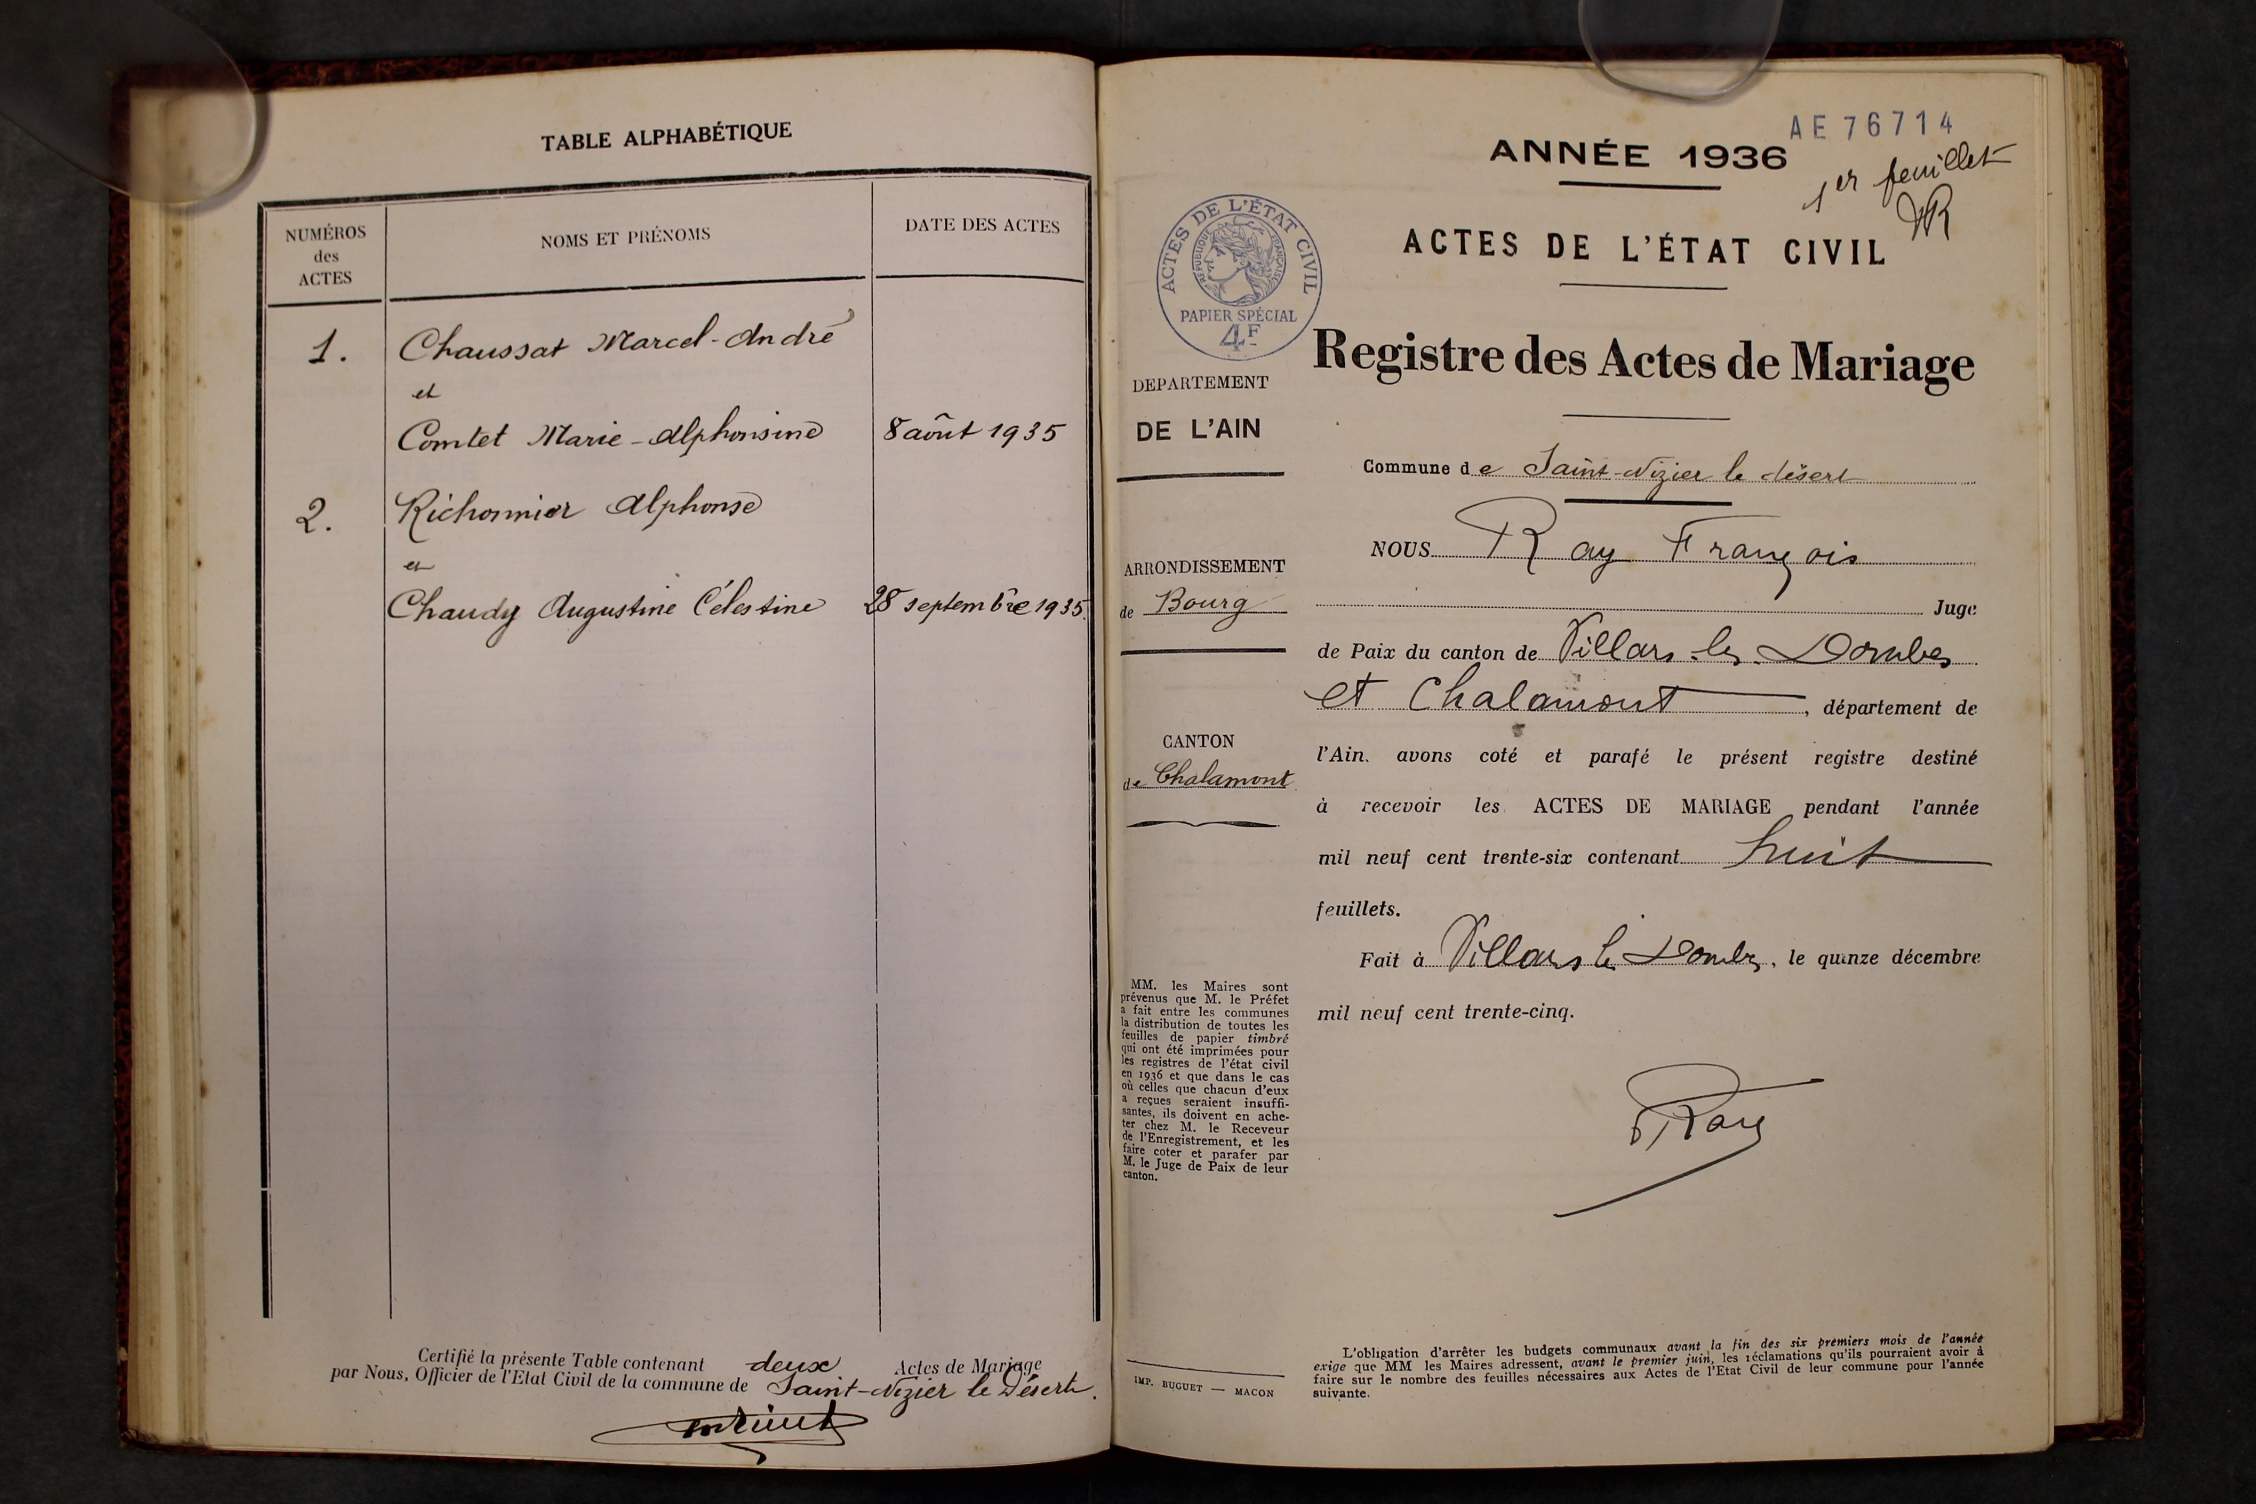 TABLE ALPHABÉTIQUE
NUMÉROS
des
ACTES
NOMS ET PRÉNOMS
DATE DES ACTES
1. Chaussat Marcel-André
et
Comtet Marie-Alphonsine 8 août 1935
2. Richonnier Alphonse
et
Chaudy Augustine Célestine 28 septembre 1935.
Certifié la présente Table contenant deux Actes de Mariage
par Nous, Officier de l'Etat Civil de la commune de Saint-Nizier le Désert.
AE 76714
ANNÉE 1936
1er feuillet
ACTES DE L'ÉTAT CIVIL
ACTES DE L'ÉTAT CIVIL
RÉPUBLIQUE FRANÇAISE
PAPIER SPÉCIAL
4F
Registre des Actes de Mariage
DEPARTEMENT
DE L'AIN
ARRONDISSEMENT
de Bourg
CANTON
de Chalamont
MM. les Maires sont
prévenus que M. le Préfet
a fait entre les communes
la distribution de toutes les
feuilles de papier timbré
qui ont été imprimées pour
les registres de l'état civil
en 1936 et que dans le cas
où celles que chacun d'eux
a reçues seraient insuffi-
santes, ils doivent en ache-
ter chez M. le Receveur
de l'Enregistrement, et les
faire coter et parafer par
M. le Juge de Paix de leur
canton.
IMP. BUGUET — MACON
Commune de Saint-Nizier le désert
NOUS Ray François
Juge
de Paix du canton de Villars-les-Dombes
et Chalamont, département de
l'Ain, avons coté et parafé le présent registre destiné
à recevoir les ACTES DE MARIAGE pendant l'année
mil neuf cent trente-six contenant huit
feuillets.
Fait à Villars les Dombes, le quinze décembre
mil neuf cent trente-cinq.
Ray
L'obligation d'arrêter les budgets communaux avant la fin des six premiers mois de l'année
exige que MM les Maires adressent, avant le premier juin, les réclamations qu'ils pourraient avoir à
faire sur le nombre des feuilles nécessaires aux Actes de l'Etat Civil de leur commune pour l'année
suivante.